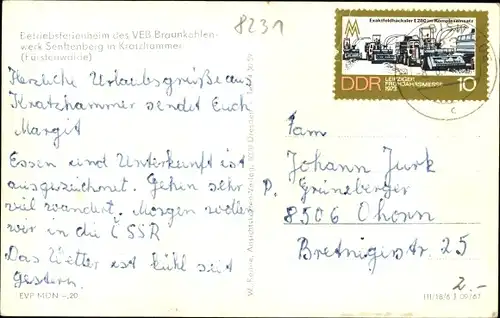 8231
Betriebsferienheim des VEB Braunkohlen-
werk Senftenberg in Kratzhammer
(Fürstenwalde)
Herzliche Urlaubsgrüße aus
Kratzhammer sendet Euch
Margit
Essen und Unterkunft ist
ausgezeichnet. Gehen sehr
viel wandert. Morgen wollen
wir in die ČSSR
Das Wetter ist kühl seit
gestern.
EVP MDN -,20
Exaktfeldhäcksler E 280 im Komplexeinsatz
DDR LEIPZIGER
FRÜHJAHRSMESSE
1973
10
c
Fam
Johann Jurk
P. Grünzberger
8506 Ohorn
Bretnigerstr. 25
2.-
III/18/6 J 09/67